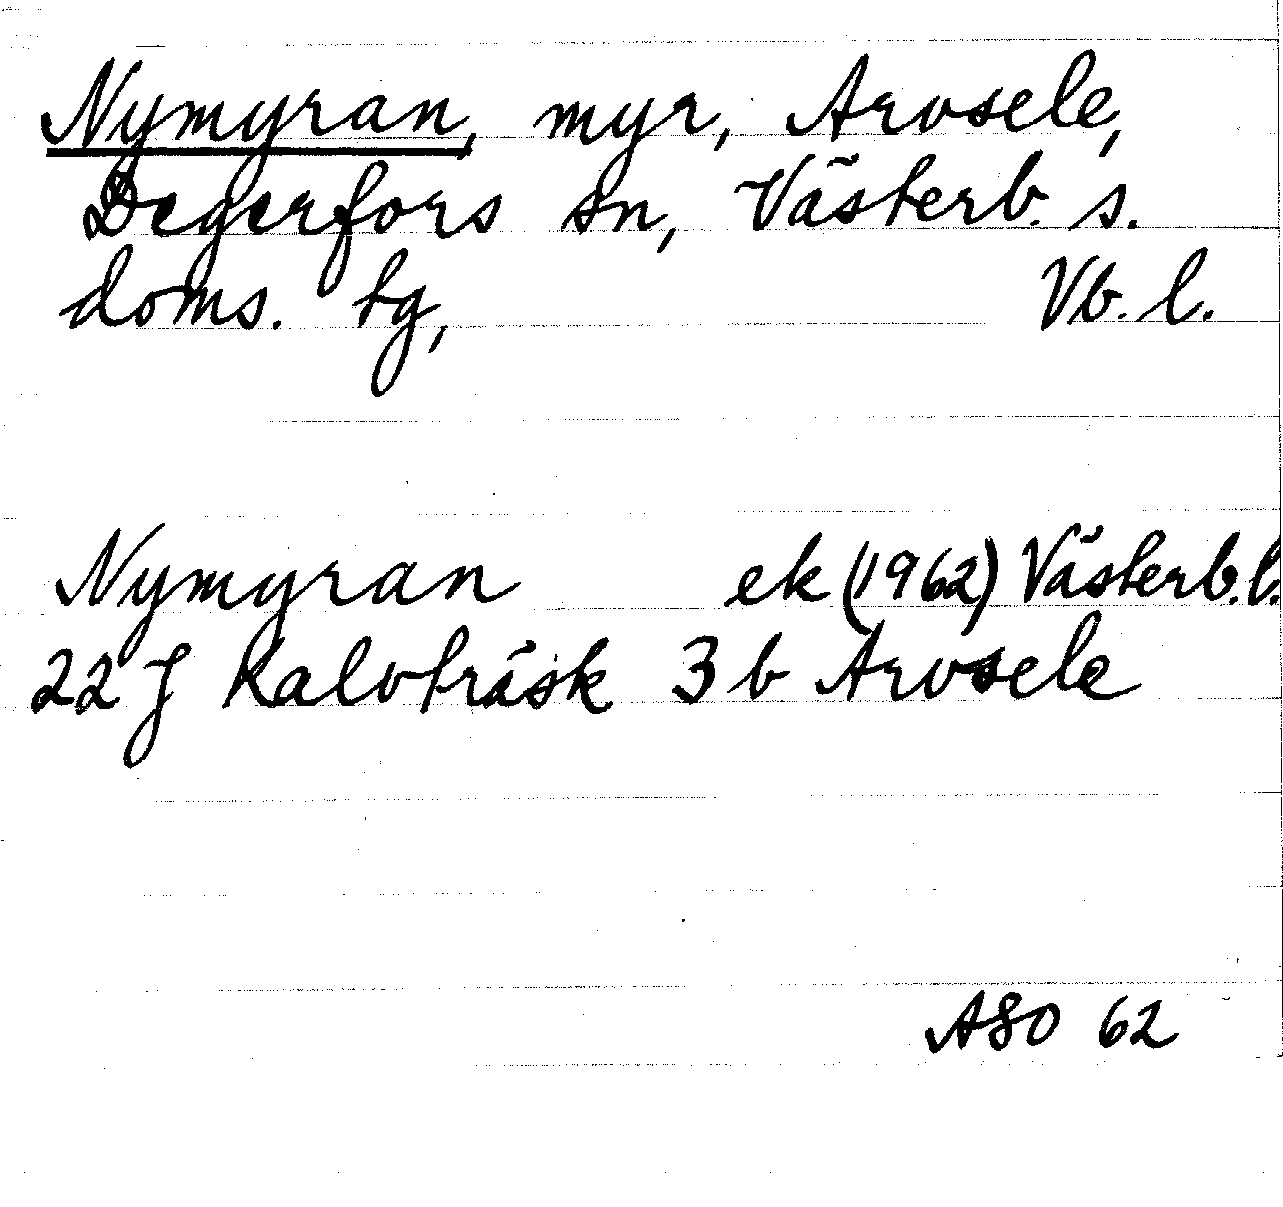 Nymyran, myr, Arvsele,
Degerfors sn, Västerb. s.
doms. tg, Vb. l.
Nymyran ek (1962) Västerb.l.
22 J Kalvträsk 3 b Arvsele
ASO 62